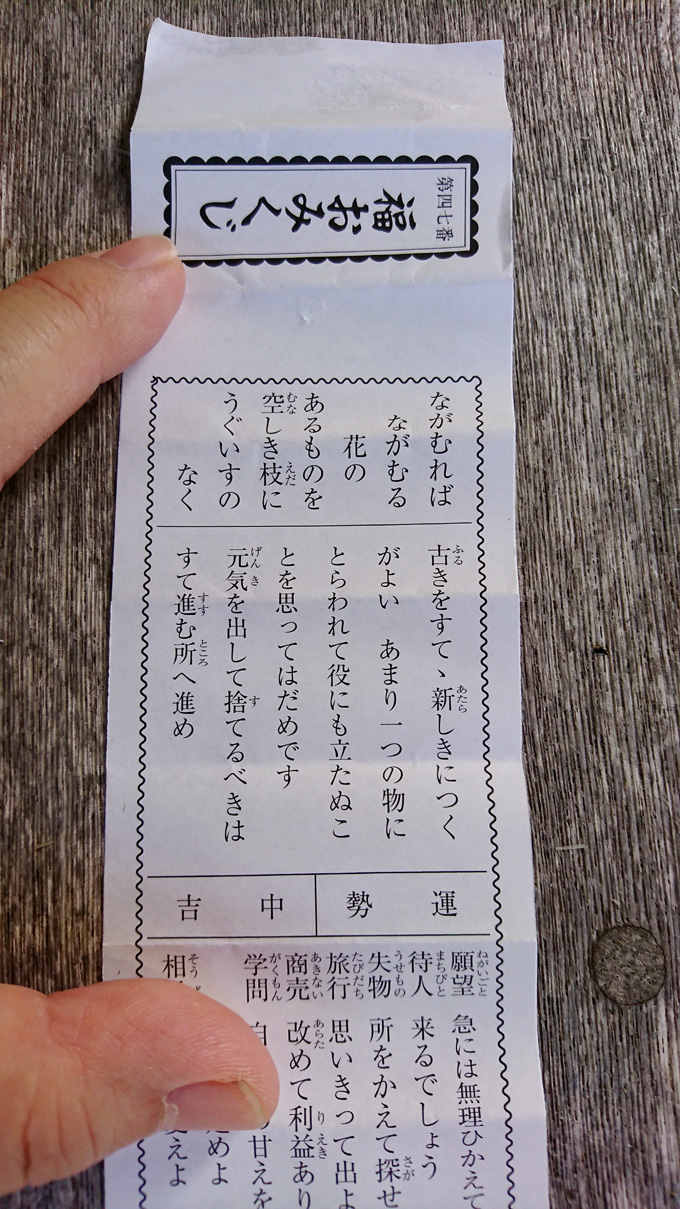 第四七番
福おみくじ
ながむれば
ながむる
花の
あるものを
空しき枝に
うぐいすの
なく
古きをすてゝ新しきにつく
がよい　あまり一つの物に
とらわれて役にも立たぬこ
とを思ってはだめです
元気を出して捨てるべきは
すて進む所へ進め
運勢
中吉
願望　急には無理ひかえて
待人　来るでしょう
失物　所をかえて探せ
旅行　思いきって出よ
商売　改めて利益あり
学問　の甘えを
めよ
相　えよ